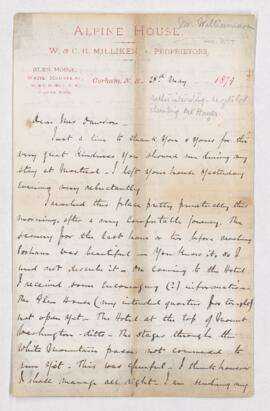 Mr Williamson
ALPINE HOUSE,
W. & C. R. MILLIKEN, PROPRIETORS,
GLEN HOUSE,
Gorham, N. H. 28th May 1877
Dear Mrs Dawson
Just a line to thank You & Yours for the
very great kindness You showed me during my
stay at Montreal — I left your house Yesterday
evening very reluctantly
I reached this place pretty punctually this
morning, after a very comfortable journey. The
scenery for the last hour or two before reaching
Gorham was beautiful — You know it, so I
need not describe it — On coming to the Hotel
I received some encouraging (?) information —
The Glen House (my intended quarters for tonight)
not open Yet — The Hotel at the top of Mount
Washington — ditto — The Stages through the
White Mountain passes not commenced to
run Yet — This was cheerful — I think however
I shall manage all right — I am sending my